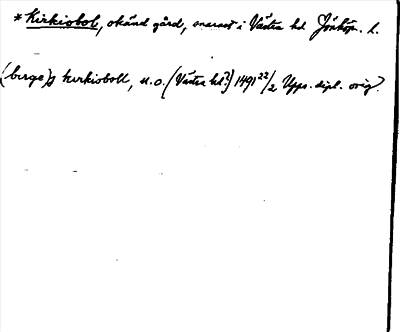 *Kirkiobol, okänd gård, snarast i Västra hd Jönköp. l.
(birge)s kirkioboll, u.o. (Västra hd?) 1491 22/2 Upps. dipl. orig.